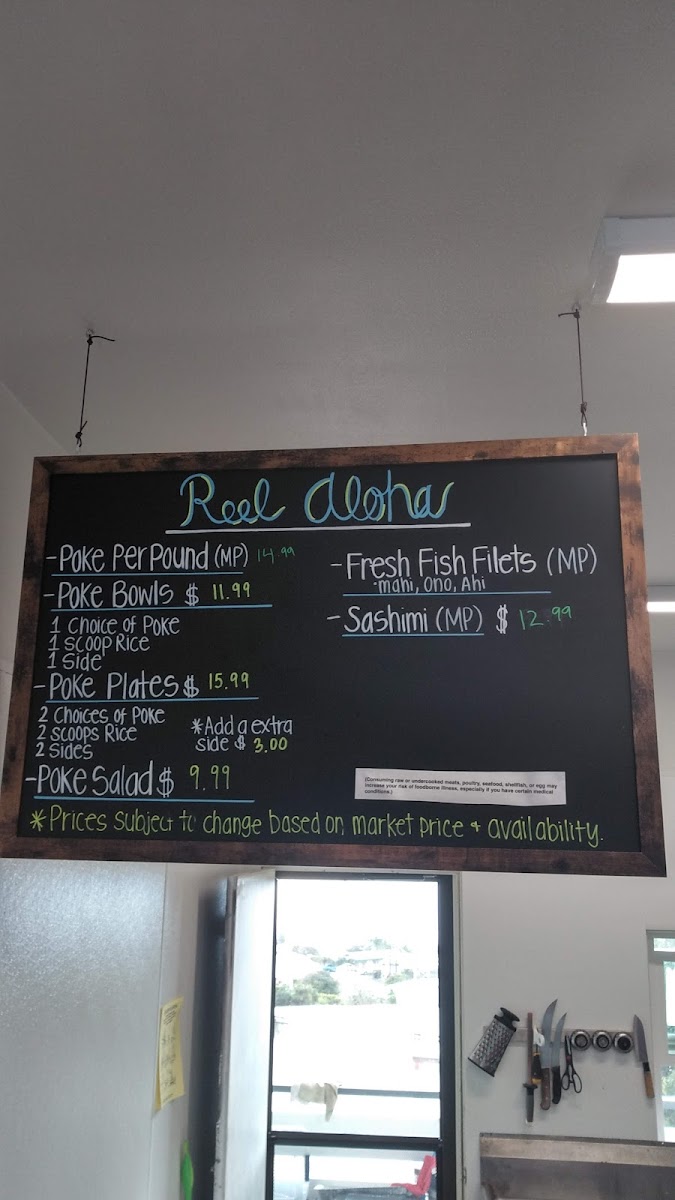 Reel Aloha
-Poke Per Pound (MP) 14.99
-Poke Bowls $ 11.99
1 Choice of Poke
1 scoop Rice
1 Side
-Poke Plates $ 15.99
2 Choices of Poke
2 scoops Rice
2 sides
*Add a extra
side $ 3.00
-Poke Salad $ 9.99
-Fresh Fish Filets (MP)
-mahi, Ono, Ahi
-Sashimi (MP) $ 12.99
(Consuming raw or undercooked meats, poultry, seafood, shellfish, or egg may
increase your risk of foodborne illness, especially if you have certain medical
conditions.)
*Prices subject to change based on market price + availability.